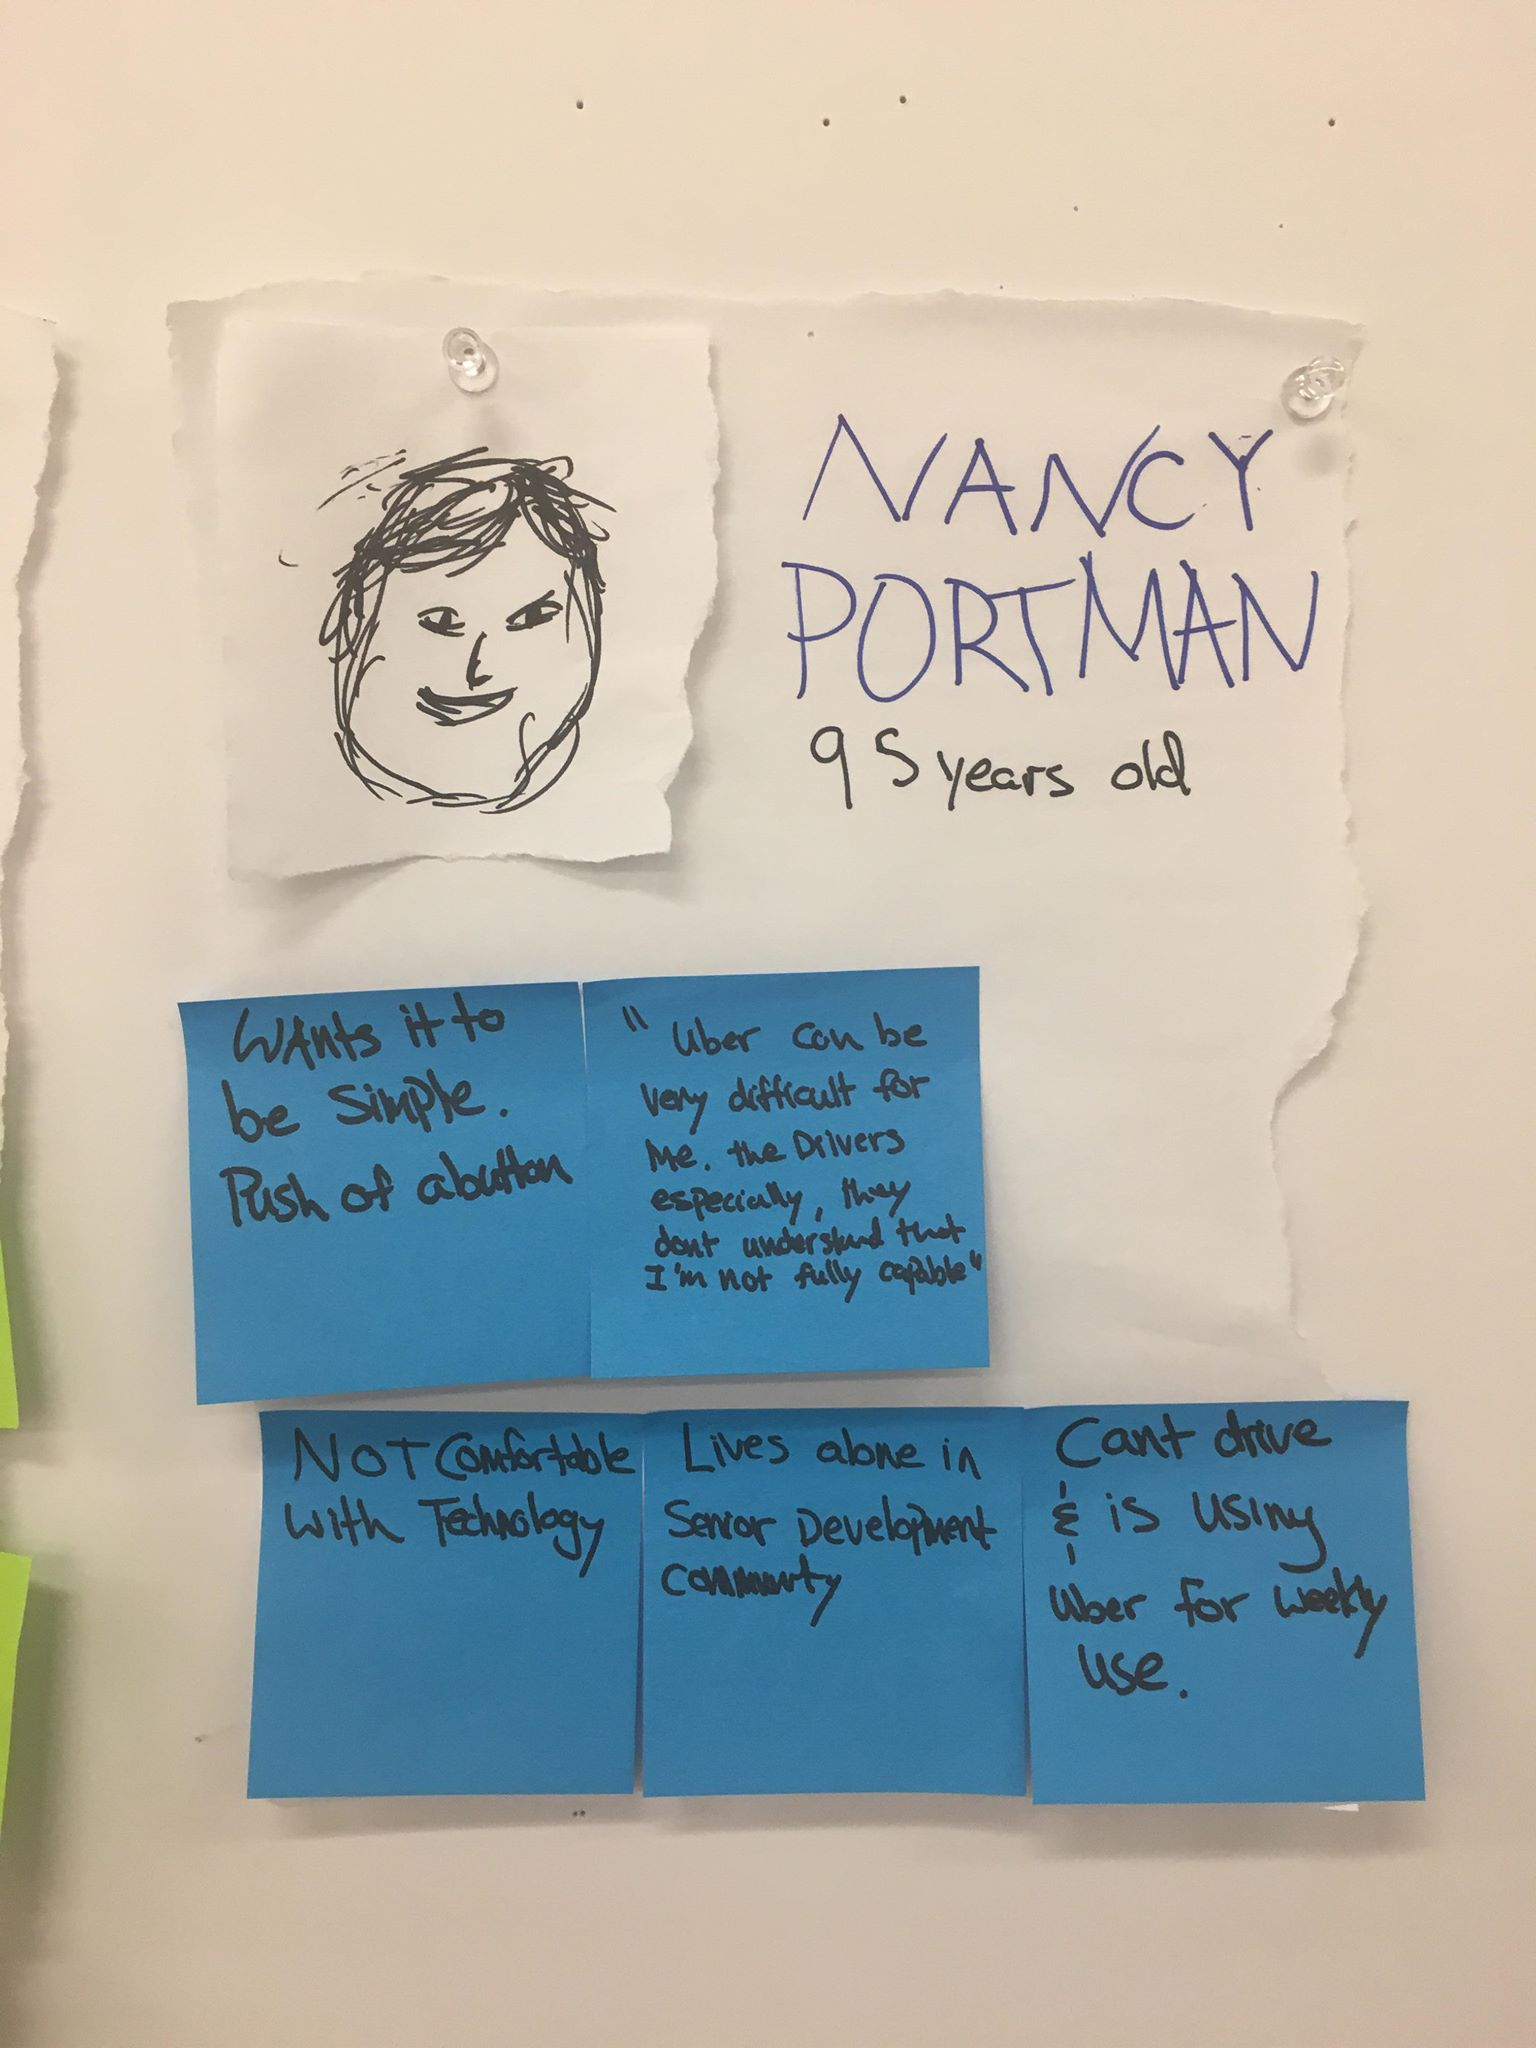 NANCY
PORTMAN
95 years old
Wants it to
be simple.
Push of a button
" Uber can be
very difficult for
Me. the Drivers
especially, they
dont understand that
I'm not fully capable"
NOT Comfortable
with Technology
Lives alone in
Senior Development
Community
Cant drive
& is using
Uber for weekly
use.